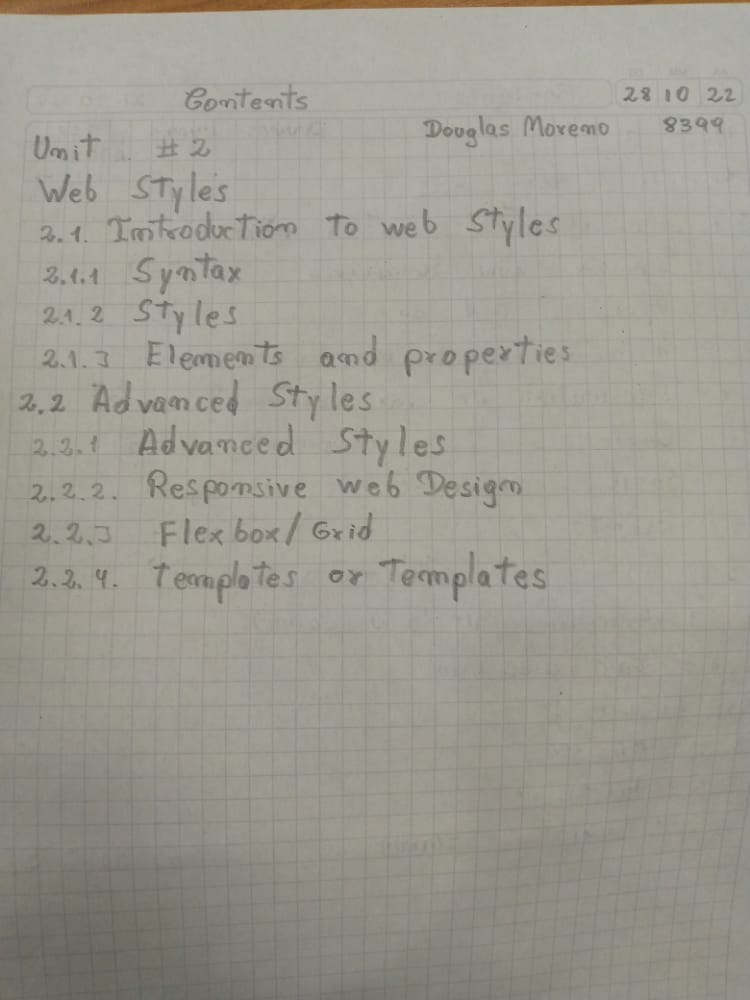 Contents 28 10 22
Douglas Moreno 8399
Unit #2
Web Styles
2.1. Introduction To web Styles
2.1.1 Syntax
2.1.2 Styles
2.1.3 Elements and properties
2.2 Advanced Styles
2.2.1 Advanced Styles
2.2.2. Responsive web Design
2.2.3 Flexbox/Grid
2.2.4. Templates or Templates